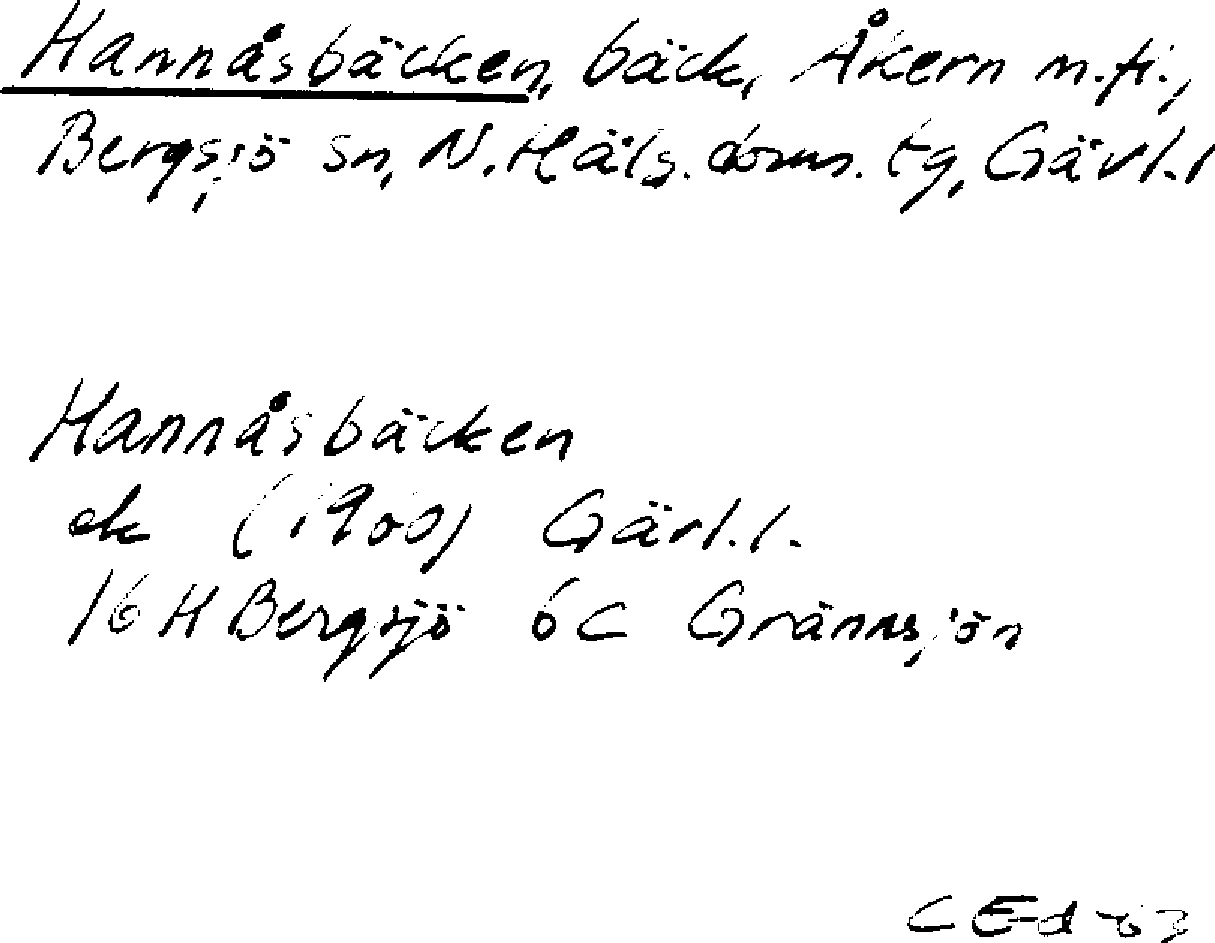 Hannåsbäcken, bäck, Åkern m.fl.,
Bergsjö sn, N. Häls. doms. tg, Gävl.l
Hannåsbäcken
ek (1960) Gävl.l.
16H Bergsjö 6C Grännsjön
C E-d